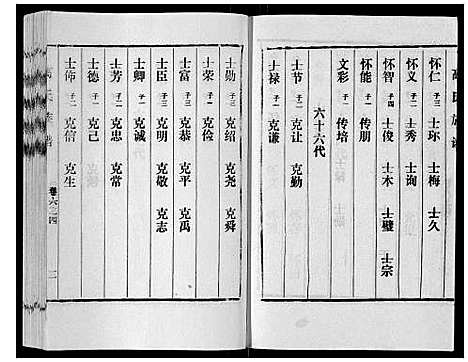 怀仁 子三 士环 士梅 士久
怀义 子二 士秀 士询
怀智 子四 士俊 士木 士璧 士宗
怀能 子一 传朋
文彩 子一 传培
六十六代
士节 子二 克让 克勤
士禄 子一 克谦
士勋 子三 克绍 克尧 克舜
士荣 子一 克俭
士富 子三 克恭 克平 克禹
士臣 子三 克明 克敬 克志
士卿 子一 克诚
士芳 子二 克忠 克常
士德 子一 克己
士伟 子二 克信 克生
卷六之四